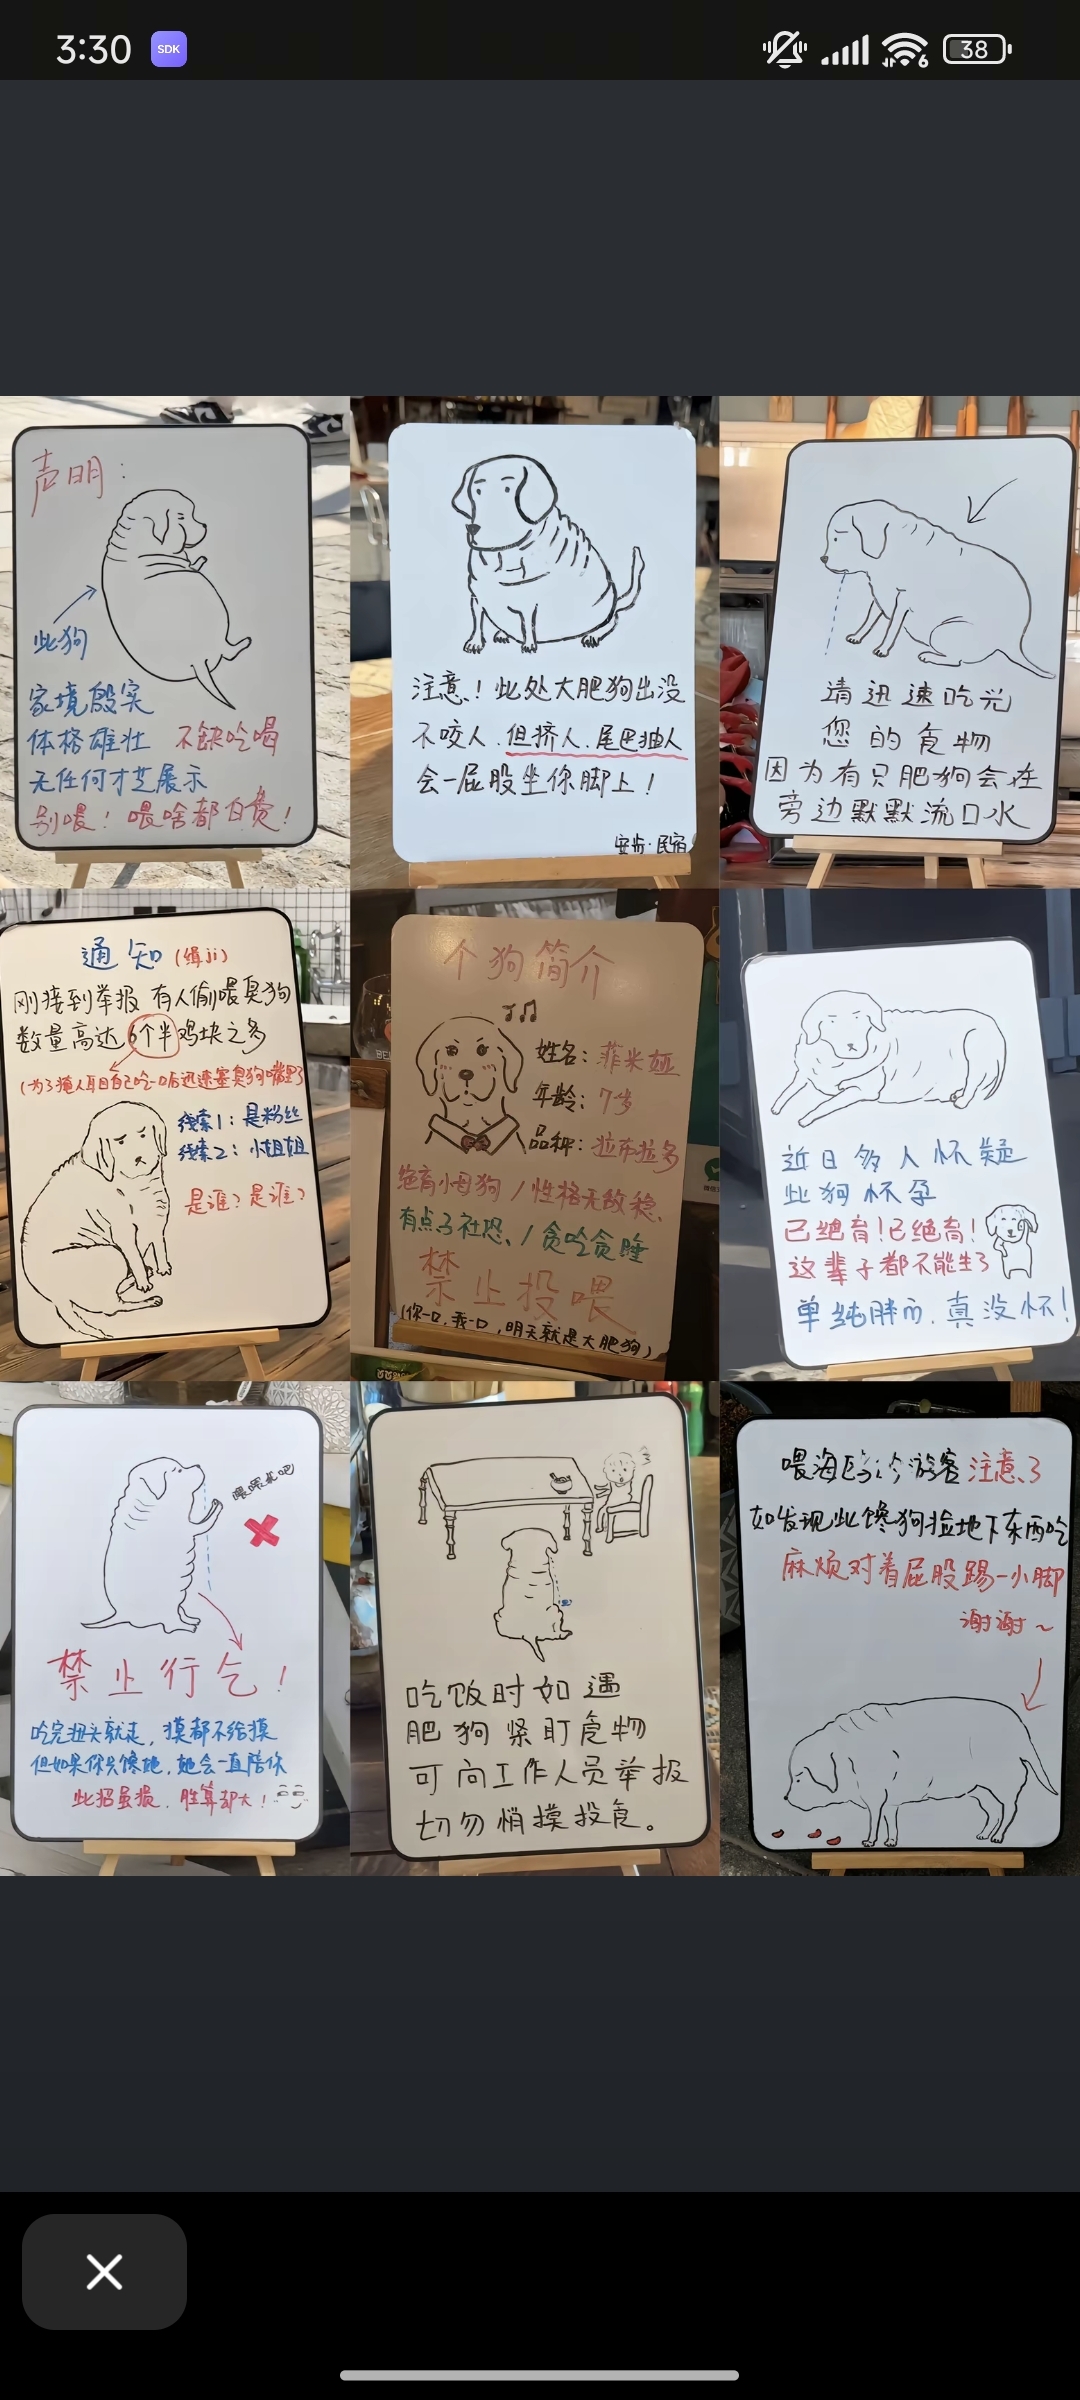 3:30
SDK
6
38
声明:
此狗
家境殷实
体格雄壮 不缺吃喝
无任何才艺展示
别喂! 喂啥都白费!
注意! 此处大肥狗出没
不咬人.但挤人.尾巴抽人
会一屁股坐你脚上!
民宿
请迅速吃光
您的食物
因为有只肥狗会在
旁边默默流口水
通知(缉ji)
刚接到举报 有人偷喂臭狗
数量高达6个半鸡块之多
(为了掩人耳目自己吃一口后迅速塞臭狗嘴里)
线索1: 是粉丝
线索2: 小姐姐
是谁? 是谁?
个狗简介
姓名: 菲米娅
年龄: 7岁
品种: 拉布拉多
绝育小母狗 / 性格无敌稳、
有点子社恐、/ 贪吃贪睡
禁止投喂
(你一口,我一口,明天就是大肥狗)
近日多人怀疑
此狗怀孕
已绝育!已绝育!
这辈子都不能生了
单纯胖而.真没怀!
喂喂我吧
禁止行乞!
吃完扭头就走, 摸都不给摸
但如果你只馋她, 她会一直陪你
此招虽损. 胜算却大!
吃饭时如遇
肥狗紧盯食物
可向工作人员举报
切勿悄摸投食。
喂海鸥的游客注意了
如发现此馋狗捡地下东西吃
麻烦对着屁股踢一小脚
谢谢~